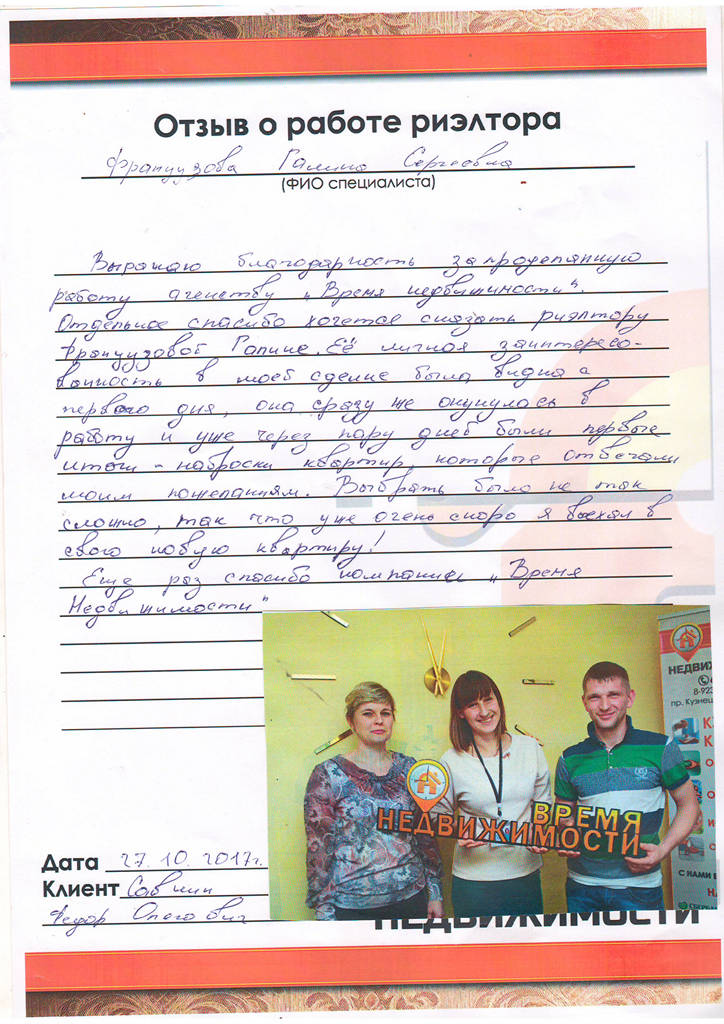 Отзыв о работе риэлтора
Французова Галина Сергеевна
(ФИО специалиста)
Выражаю благодарность за проделанную
работу агенству „Время недвижимости".
Отдельное спасибо хочется сказать риэлтору
Французовой Галине. Её личная заинтересо-
ванность в моей сделке была видна с
первого дня, она сразу же окунулась в
работу и уже через пару дней были первые
итоги - наброски квартир, которые отвечали
моим пожеланиям. Выбрать было не так
сложно, так что уже очень скоро я въехал в
свою новую квартиру!
Еще раз спасибо компании „Время
Недвижимости"
НЕДВИЖ
8-923
пр. Кузнец
ВРЕМЯ
НЕДВИЖИМОСТИ
С НАМИ
Дата 27.10.2017г.
Клиент Савкин
Федор Олегович
НЕДВИЖИМОСТИ